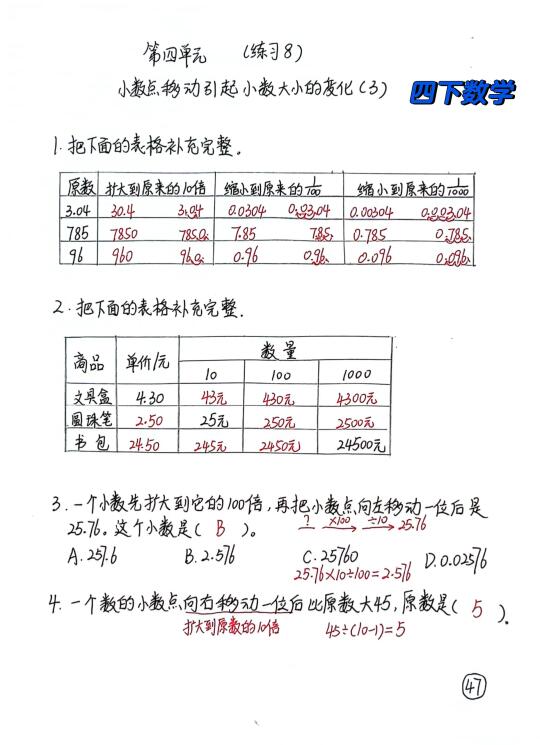 第四单元 (练习8)
小数点移动引起小数大小的变化(3) 四下数学
1.把下面的表格补充完整。
原数 扩大到原来的10倍 缩小到原来的1/100 缩小到原来的1/1000
3.04 30.4 3.04 0.0304 0.03.04 0.00304 0.003.04
785 7850 785.0. 7.85 7.85. 0.785 0.785.
96 960 96.0. 0.96 0.96. 0.096 0.096.
2.把下面的表格补充完整.
商品 单价/元 数量
10 100 1000
文具盒 4.30 43元 430元 4300元
圆珠笔 2.50 25元 250元 2500元
书包 24.50 245元 2450元 24500元
3.一个小数先扩大到它的100倍,再把小数点向左移动一位后是
25.76。这个小数是( B )。 ? ×100 ÷10 25.76
A.257.6 B.2.576 C.25760 D.0.02576
25.76×10÷100=2.576
4.一个数的小数点向右移动一位后比原数大45,原数是( 5 )。
扩大到原数的10倍 45÷(10-1)=5
47